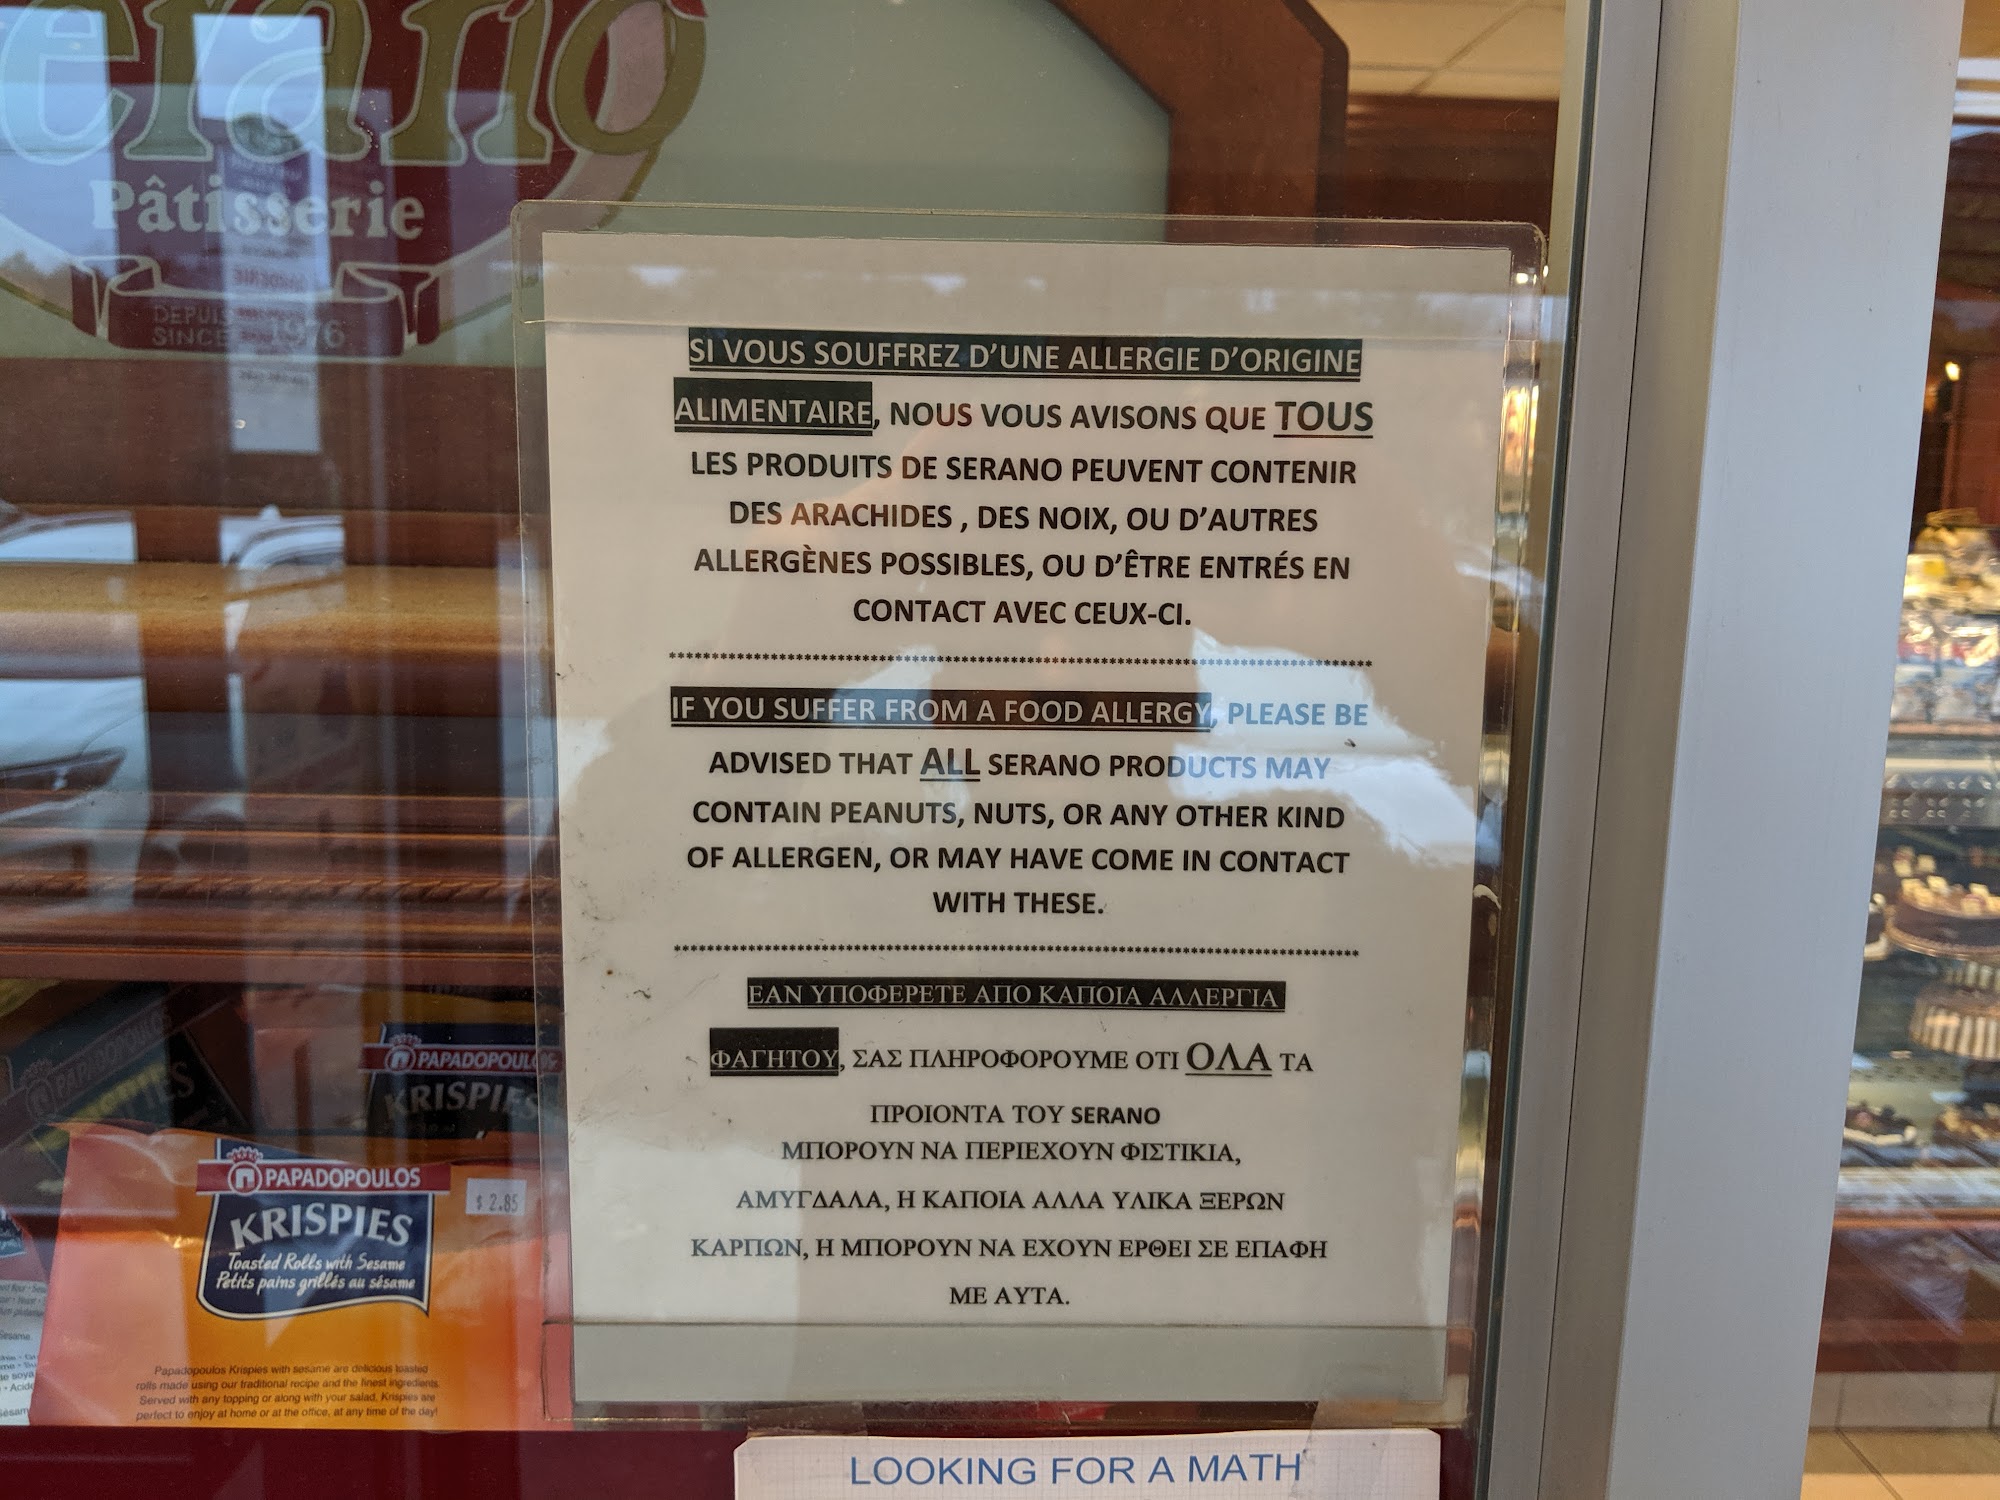 erano
Pâtisserie
DEPUIS
SINCE 1976
SI VOUS SOUFFREZ D'UNE ALLERGIE D'ORIGINE
ALIMENTAIRE, NOUS VOUS AVISONS QUE TOUS
LES PRODUITS DE SERANO PEUVENT CONTENIR
DES ARACHIDES , DES NOIX, OU D'AUTRES
ALLERGÈNES POSSIBLES, OU D'ÊTRE ENTRÉS EN
CONTACT AVEC CEUX-CI.
IF YOU SUFFER FROM A FOOD ALLERGY, PLEASE BE
ADVISED THAT ALL SERANO PRODUCTS MAY
CONTAIN PEANUTS, NUTS, OR ANY OTHER KIND
OF ALLERGEN, OR MAY HAVE COME IN CONTACT
WITH THESE.
ΕΑΝ ΥΠΟΦΕΡΕΤΕ ΑΠΟ ΚΑΠΟΙΑ ΑΛΛΕΡΓΙΑ
ΦΑΓΗΤΟΥ, ΣΑΣ ΠΛΗΡΟΦΟΡΟΥΜΕ ΟΤΙ ΟΛΑ ΤΑ
ΠΡΟΙΟΝΤΑ ΤΟΥ SERANO
ΜΠΟΡΟΥΝ ΝΑ ΠΕΡΙΕΧΟΥΝ ΦΙΣΤΙΚΙΑ,
ΑΜΥΓΔΑΛΑ, Η ΚΑΠΟΙΑ ΑΛΛΑ ΥΛΙΚΑ ΞΕΡΩΝ
ΚΑΡΠΩΝ, Η ΜΠΟΡΟΥΝ ΝΑ ΕΧΟΥΝ ΕΡΘΕΙ ΣΕ ΕΠΑΦΗ
ΜΕ ΑΥΤΑ.
LOOKING FOR A MATH
PAPADOPOULOS
KRISPIES
PAPADOPOULOS
KRISPIES
Toasted Rolls with Sesame
Petits pains grillés au sésame
$ 2.85
Papadopoulos Krispies with sesame are delicious toasted
rolls made using our traditional recipe and the finest ingredients.
Served with any topping or along with your salad, Krispies are
perfect to enjoy at home or at the office, at any time of the day!